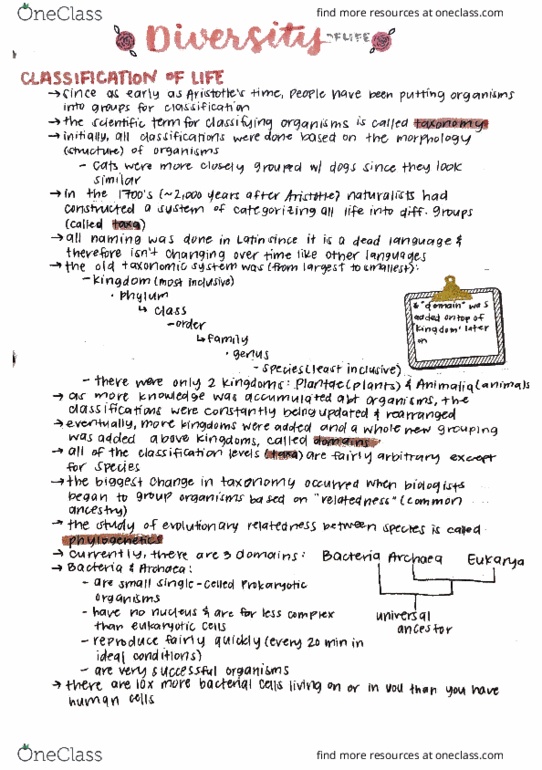 OneClass
find more resources at oneclass.com
Diversity OF LIFE
CLASSIFICATION OF LIFE
→ since as early as Aristotle's time, people have been putting organisms
into groups for classification
→ the scientific term for classifying organisms is called taxonomy
→ initially, all classifications were done based on the morphology
(structure) of organisms
- Cats were more closely grouped w/ dogs since they look
similar
→ in the 1700's (~2,000 years after Aristotle) naturalists had
constructed a system of categorizing all life into diff. groups
(called taxa)
→ all naming was done in Latin since it is a dead language &
therefore isn't changing over time like other languages
→ the old taxonomic system was (from largest to smallest):
- Kingdom (most inclusive)
• phylum
↳ class
- order
↳ family
• genus
- species (least inclusive)
* "domain" was
added on top of
'kingdom' later
on
- there were only 2 kingdoms: Plantae (plants) & Animalia (animals
→ as more knowledge was accumulated abt organisms, the
classifications were constantly being updated & rearranged
→ eventually, more kingdoms were added and a whole new grouping
was added above kingdoms, called domains
→ all of the classification levels (taxa) are fairly arbitrary except
for species
→ the biggest change in taxonomy occurred when biologists
began to group organisms based on "relatedness" (common
ancestry)
→ the study of evolutionary relatedness between species is called
phylogenetics
→ currently, there are 3 domains: Bacteria Archaea Eukarya
→ Bacteria & Archaea:
- are small single-celled prokaryotic
organisms
- have no nucleus & are far less complex
than eukaryotic cells
- reproduce fairly quickly (every 20 min in
ideal conditions)
- are very successful organisms
universal
ancestor
→ there are 10x more bacterial cells living on or in you than you have
human cells
OneClass
find more resources at oneclass.com